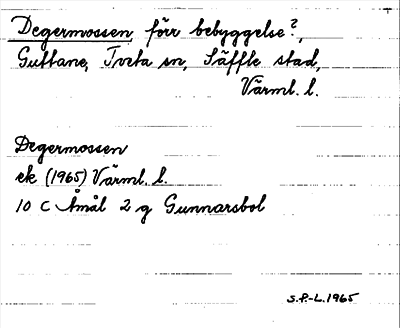 Degermossen, förr bebyggelse?,
Guttane, Tveta sn, Säffle stad,
Värml. l.
Degermossen
ek (1965) Värml. l.
10 C Åmål 2 g Gunnarsbol
S.P.-L. 1965